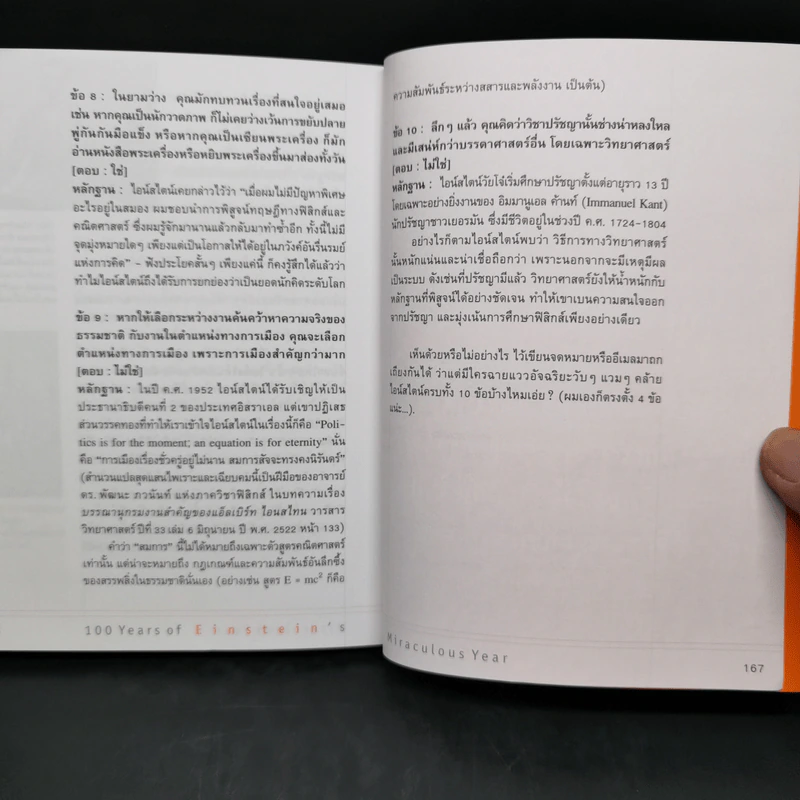 ข้อ 8 : ในยามว่าง คุณมักทบทวนเรื่องที่สนใจอยู่เสมอ
เช่น หากคุณเป็นนักวาดภาพ ก็ไม่เคยว่างเว้นการขยับปลาย
พู่กันกันมือแข็ง หรือหากคุณเป็นเซียนพระเครื่อง ก็มัก
อ่านหนังสือพระเครื่องหรือหยิบพระเครื่องขึ้นมาส่องทั้งวัน
[ตอบ : ใช่]
หลักฐาน : ไอน์สไตน์เคยกล่าวไว้ว่า “เมื่อผมไม่มีปัญหาพิเศษ
อะไรอยู่ในสมอง ผมชอบนำการพิสูจน์ทฤษฎีทางฟิสิกส์และ
คณิตศาสตร์ ซึ่งผมรู้จักมานานแล้วกลับมาทำซ้ำอีก ทั้งนี้ไม่มี
จุดมุ่งหมายใดๆ เพียงแต่เป็นโอกาสให้ได้อยู่ในภวังค์อันรื่นรมย์
แห่งการคิด” - ฟังประโยคสั้นๆ เพียงแค่นี้ ก็คงรู้สึกได้แล้วว่า
ทำไมไอน์สไตน์ถึงได้รับการยกย่องว่าเป็นยอดนักคิดระดับโลก
ข้อ 9 : หากให้เลือกระหว่างงานค้นคว้าหาความจริงของ
ธรรมชาติ กับงานในตำแหน่งทางการเมือง คุณจะเลือก
ตำแหน่งทางการเมือง เพราะการเมืองสำคัญกว่ามาก
[ตอบ : ไม่ใช่]
หลักฐาน : ในปี ค.ศ. 1952 ไอน์สไตน์ได้รับเชิญให้เป็น
ประธานาธิบดีคนที่ 2 ของประเทศอิสราเอล แต่เขาปฏิเสธ
ส่วนวรรคทองที่ทำให้เราเข้าใจไอน์สไตน์ในเรื่องนี้ก็คือ “Poli-
tics is for the moment; an equation is for eternity” นั่น
คือ “การเมืองเรื่องชั่วครู่อยู่ไม่นาน สมการสัจจะทรงคงนิรันดร์”
(สำนวนแปลสุดแสนไพเราะและเฉียบคมนี้เป็นฝีมือของอาจารย์
ดร. พัฒนะ ภวนันท์ แห่งภาควิชาฟิสิกส์ ในบทความเรื่อง
บรรณานุกรมงานสำคัญของแอ็ลเบิร์ท ไอนสไทน วารสาร
วิทยาศาสตร์ ปีที่ 33 เล่ม 6 มิถุนายน ปี พ.ศ. 2522 หน้า 133)
คำว่า “สมการ” นี้ไม่ได้หมายถึงเฉพาะตัวสูตรคณิตศาสตร์
เท่านั้น แต่น่าจะหมายถึง กฎเกณฑ์และความสัมพันธ์อันลึกซึ้ง
ของสรรพสิ่งในธรรมชาตินั่นเอง (อย่างเช่น สูตร E = mc² ก็คือ
100 Years of Einstein's
ความสัมพันธ์ระหว่างสสารและพลังงาน เป็นต้น)
ข้อ 10 : ลึกๆ แล้ว คุณคิดว่าวิชาปรัชญานั้นช่างน่าหลงใหล
และมีเสน่ห์กว่าบรรดาศาสตร์อื่น โดยเฉพาะวิทยาศาสตร์
[ตอบ : ไม่ใช่]
หลักฐาน : ไอน์สไตน์วัยโจ๋เริ่มศึกษาปรัชญาตั้งแต่อายุราว 13 ปี
โดยเฉพาะอย่างยิ่งงานของ อิมมานูเอล ค้านท์ (Immanuel Kant)
นักปรัชญาชาวเยอรมัน ซึ่งมีชีวิตอยู่ในช่วงปี ค.ศ. 1724-1804
อย่างไรก็ตามไอน์สไตน์พบว่า วิธีการทางวิทยาศาสตร์
นั้นหนักแน่นและน่าเชื่อถือกว่า เพราะนอกจากจะมีเหตุมีผล
เป็นระบบ ดังเช่นที่ปรัชญามีแล้ว วิทยาศาสตร์ยังให้น้ำหนักกับ
หลักฐานที่พิสูจน์ได้อย่างชัดเจน ทำให้เขาเบนความสนใจออก
จากปรัชญา และมุ่งเน้นการศึกษาฟิสิกส์เพียงอย่างเดียว
เห็นด้วยหรือไม่อย่างไร ไว้เขียนจดหมายหรืออีเมลมาถก
เถียงกันได้ ว่าแต่มีใครฉายแววอัจฉริยะวับๆ แวมๆ คล้าย
ไอน์สไตน์ครบทั้ง 10 ข้อบ้างไหมเอ่ย ? (ผมเองก็ตรงตั้ง 4 ข้อ
แน่ะ...).
Miraculous Year
167